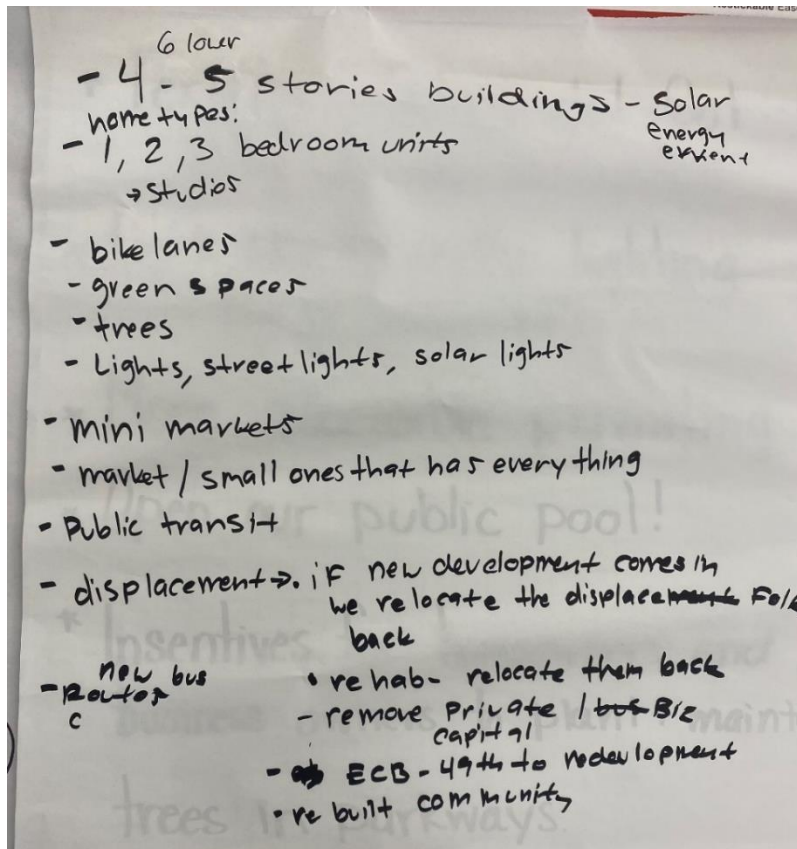 6 lower
- 4 - 5 stories buildings - solar
energy
home types:
- 1, 2, 3 bedroom units
→ studios
- bike lanes
- green spaces
- trees
- Lights, street lights, solar lights
- mini markets
- market / small ones that has everything
- Public transit
- displacement →. if new development comes in
we relocate the displace Folk
back
new bus
- Routes
c
• rehab - relocate them back
- remove private / Biz
capital
- ECB - 49th to redevlopment
• re built community
Open our public pool!
* Insentives
and
maint
trees in parkways